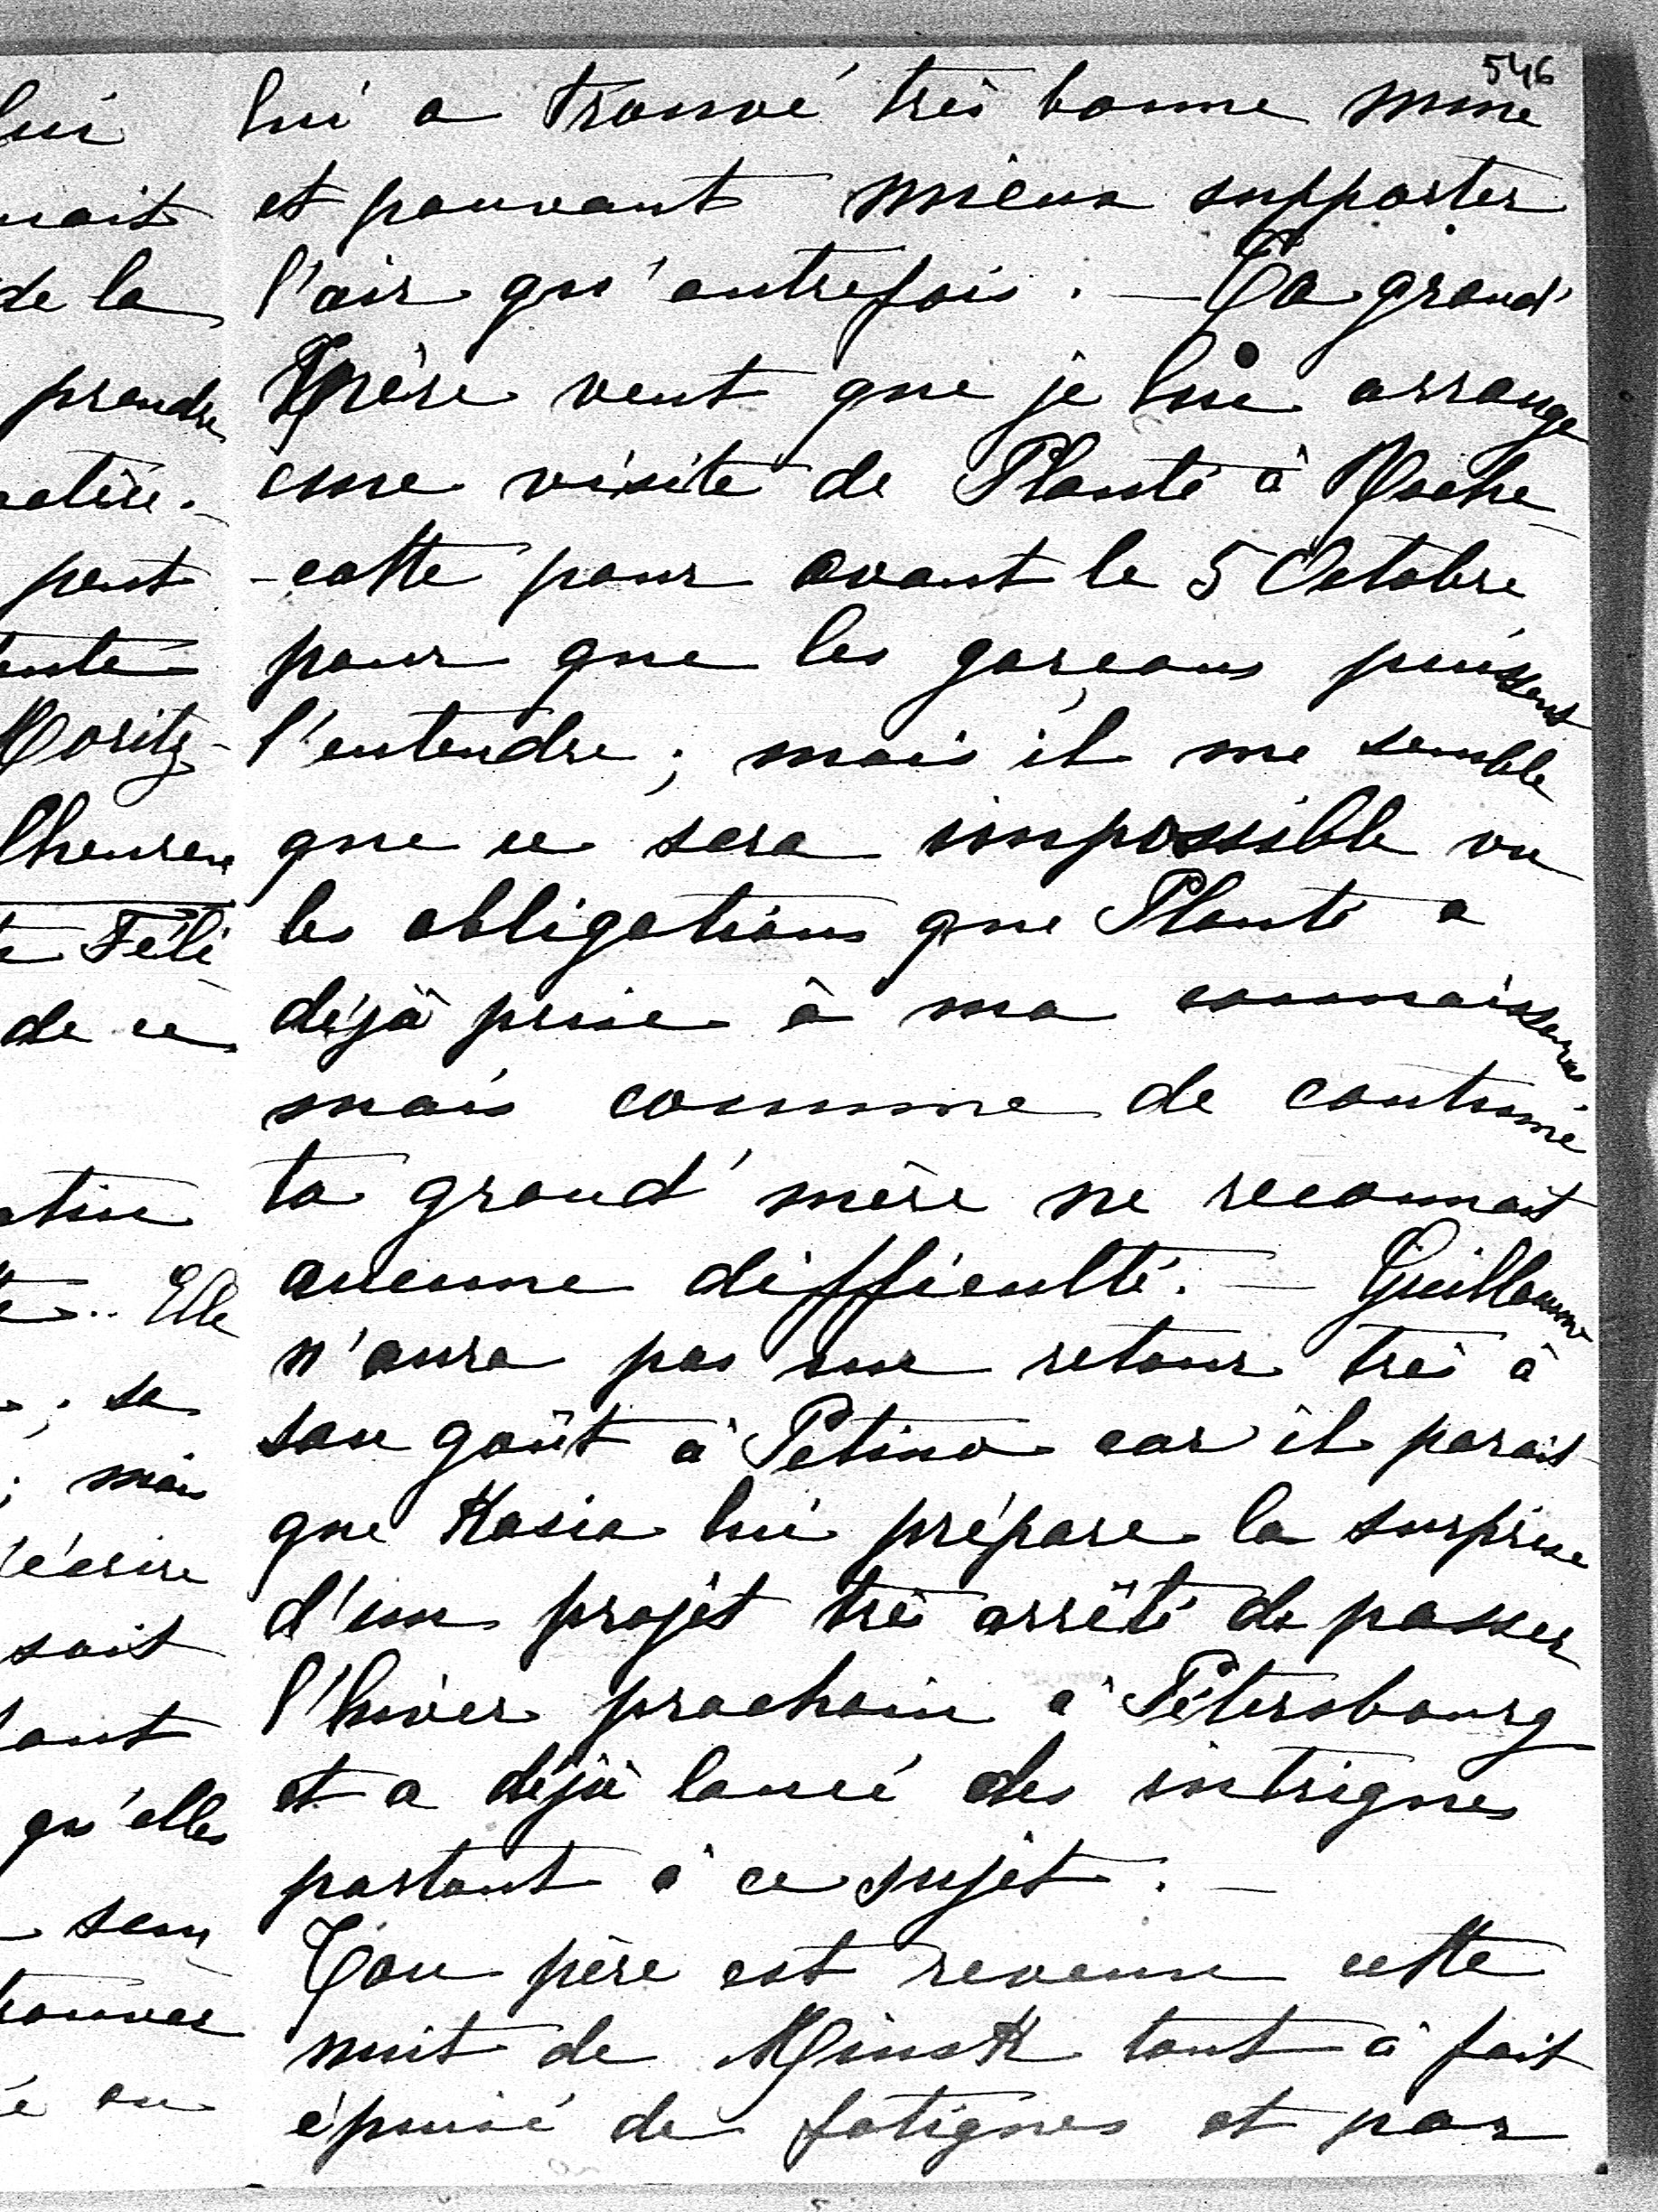 546
lui a trouvé très bonne mine
et pouvant mieux supporter
l'air qu'autrefois. — Ta grand'
Mère veut que je lui arrange
une visite de Planté à Roche
-cotte pour avant le 5 Octobre
pour que les garçons puissent
l'entendre; mais il me semble
que ce sera impossible vu
les obligations que Planté a
déjà prise à ma connaissance
mais comme de coutume
ta grand'mère ne reconnait
aucune difficulté. — Guillaume
n'aura pas un retour très à
son goût à Petino car il parait
que Kasia lui prépare la surprise
d'un projêt très arrêté de passer
l'hiver prochain à Pétersbourg
et a déjà lancé des intrigues
partout à ce sujèt. —
Ton père est revenu cette
nuit de Minsk tout à fait
épuisé de fatigues et par
lui
de la
prendre
peut
Moritz -
Féli
de ce
Elle
sa
; mais
soit
qu'elles